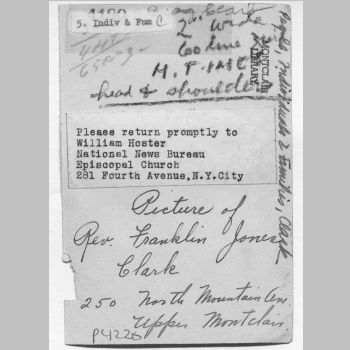 5. Indiv & Fam C
head & shoulder
MONTCLAIR
LIBRARY
People, Individuals & Families, Clark
Please return promptly to
William Hoster
National News Bureau
Episcopal Church
281 Fourth Avenue, N.Y. City
Picture of
Rev. Franklin Jones
Clark
250 North Mountain Ave.
Upper Montclair
P4226